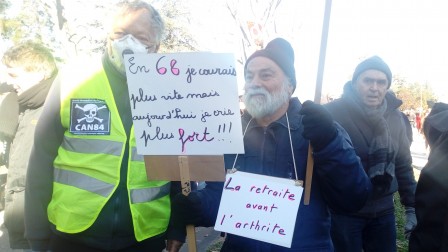 En 68 je courais
plus vite mais
aujourd'hui je crie
plus fort !!!
CAN84
La retraite
avant
l'arthrite